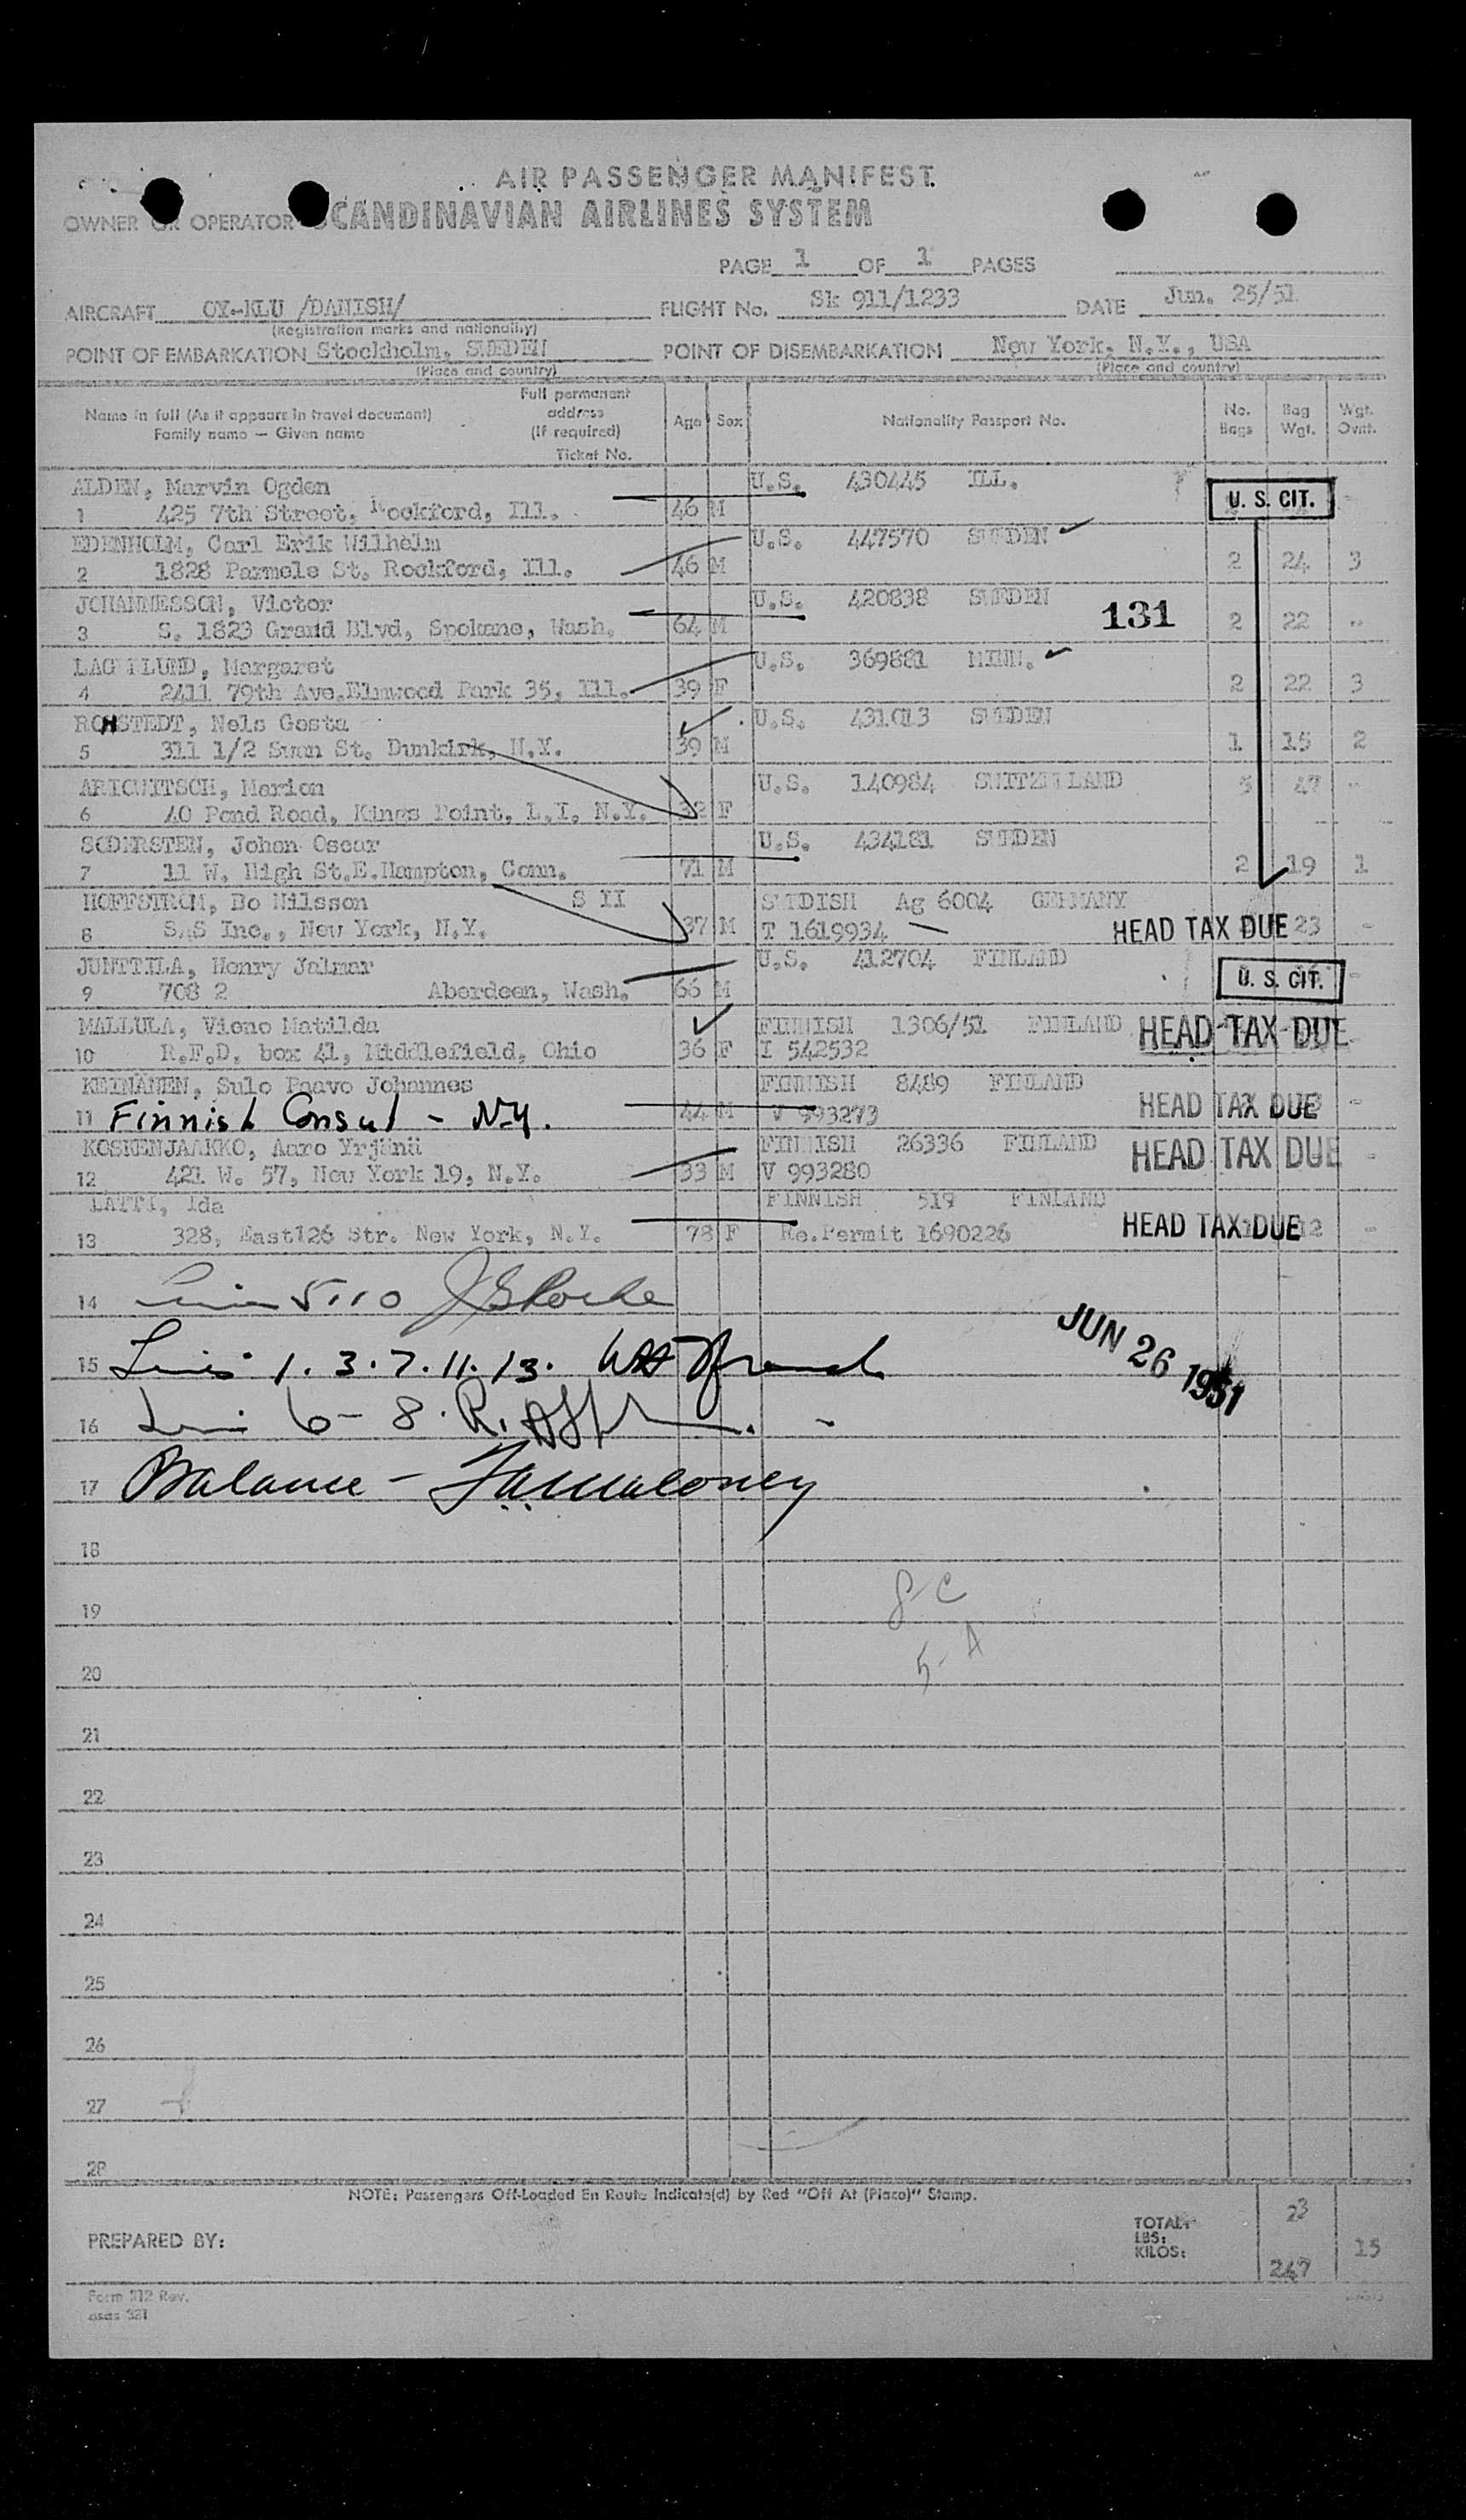 AIR PASSENGER MANIFEST
OWNER OR OPERATOR SCANDINAVIAN AIRLINES SYSTEM
PAGE 1 OF 1 PAGES
AIRCRAFT OY-KLU /DANISH/ FLIGHT No. Sk 911/1233 DATE Jun. 25/51
(Registration marks and nationality)
POINT OF EMBARKATION Stockholm, SWEDEN POINT OF DISEMBARKATION New York, N.Y., USA
(Place and country) (Place and country)
Name in full (As it appears in travel document) Family name — Given name Full permanent address (If required) Ticket No. Age Sex Nationality Passport No. No. Bags Bag Wgt. Wgt. Ovnt.
ALDEN, Marvin Ogden U.S. 430445 ILL.
1 425 7th Street, Rockford, Ill. 46 M U. S. CIT. -
EDENHOLM, Carl Erik Wilhelm U.S. 447570 SWEDEN
2 1828 Parmele St. Rockford, Ill. 46 M 2 24 3
JOHANNESSON, Victor U.S. 420838 SWEDEN
3 S. 1823 Grand Blvd, Spokane, Wash. 64 M 131 2 22 -
LAGERLUND, Margaret U.S. 369881 MINN.
4 2411 79th Ave.Elmwood Park 35, Ill. 39 F 2 22 3
ROHSTEDT, Nels Gosta U.S. 431013 SWEDEN
5 311 1/2 Swan St. Dunkirk, N.Y. 39 M 1 15 2
Marion U.S. 140984 SWITZERLAND 5 47 -
6 40 Pond Road, Kings Point, L.I. N.Y. 32 F
SODERSTEN, Johan Oscar U.S. 434181 SWEDEN
7 11 W. High St.E.Hampton, Conn. 71 M 2 19 1
HOFFSTROM, Bo Nilsson S II SWEDISH Ag 6004 GERMANY
8 SAS Inc., New York, N.Y. 37 M T 1619934 HEAD TAX DUE 23 -
JUNTTILA, Henry Jalmar U.S. 412704 FINLAND
9 708 2 Aberdeen, Wash. 66 M U. S. CIT. -
MALLULA, Vieno Matilda FINNISH 1306/51 FINLAND HEAD TAX DUE
10 R.F.D. box 41, Middlefield, Ohio 36 F I 542532
KEINÄNEN, Sulo Paavo Johannes FINNISH 8489 FINLAND
11 Finnish Consul - N.Y. 44 M V 993273 HEAD TAX DUE -
KOSKENJAAKKO, Aaro Yrjänä FINNISH 26336 FINLAND HEAD TAX DUE -
12 421 W. 57, New York 19, N.Y. 33 M V 993280
LATTI, Ida FINNISH 519 FINLAND
13 328, East126 Str. New York, N.Y. 78 F Re.Permit 1690226 HEAD TAX DUE 12 -
14 5.10
JUN 26 1951
15 Lines 1. 3. 7. 11. 13.
16 6 - 8.
17 Balance -
18
19 8-C
20 5-A
21
22
23
24
25
26
27
28
NOTE: Passengers Off-Loaded En Route Indicate(d) by Red "Off At (Place)" Stamp.
PREPARED BY: TOTAL: 23
LBS:
KILOS: 247 15
Form 212 Rev.